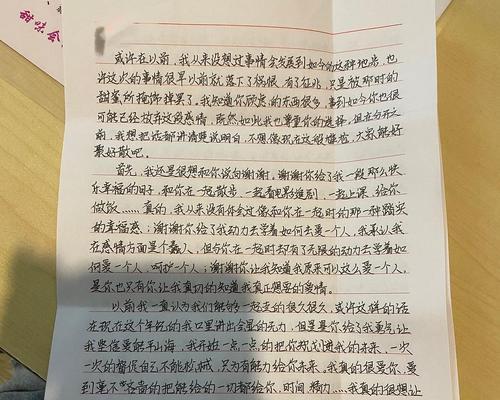 甜味会
或许在以前，我从来没想过事情会发展到如今的这种地步，也
许这次的事情很早以前就落下了祸根，有了征兆，只是被那时的
甜蜜所掩饰掉罢了，我知道你顾虑的东西很多，事到如今你也很
可能已经放弃这段感情，既然如此我也尊重你的选择，但在分开之
前，我想把话都讲清楚说明白，不想像现在这般尴尬，大家能好
聚好散吧。
首先，我还是很想和你说句谢谢。谢谢你给了我一段那么快
乐幸福的日子，和你在一起散步，一起看电影追剧，一起上课，给你
做饭……真的，我从来没有体会过像和你在一起时的那一种踏实
的幸福感；谢谢你给了我动力去学着如何去爱一个人，我承认我
在感情方面是个蠢人，但与你在一起时却有了无限的动力去学着如
何爱一个人，呵护一个人；谢谢你让我知道我原来可以这么爱一个人，
是你也只有你让我真切的知道我真正想要的爱情。
以前我一直认为我们能够一起走的很久很久，或许这样的话
在现在这个年纪的我口里讲出会显的无力，但是是你给了我勇气让
我坚信爱能平山海，我开始一点一点的把你规划进我的未来，一次
一次的督促自己不能放
，只为有能力给你未来。我真的很爱你，爱
到毫不吝啬的把能给的一切都给你，时间，精力……我真的很想让